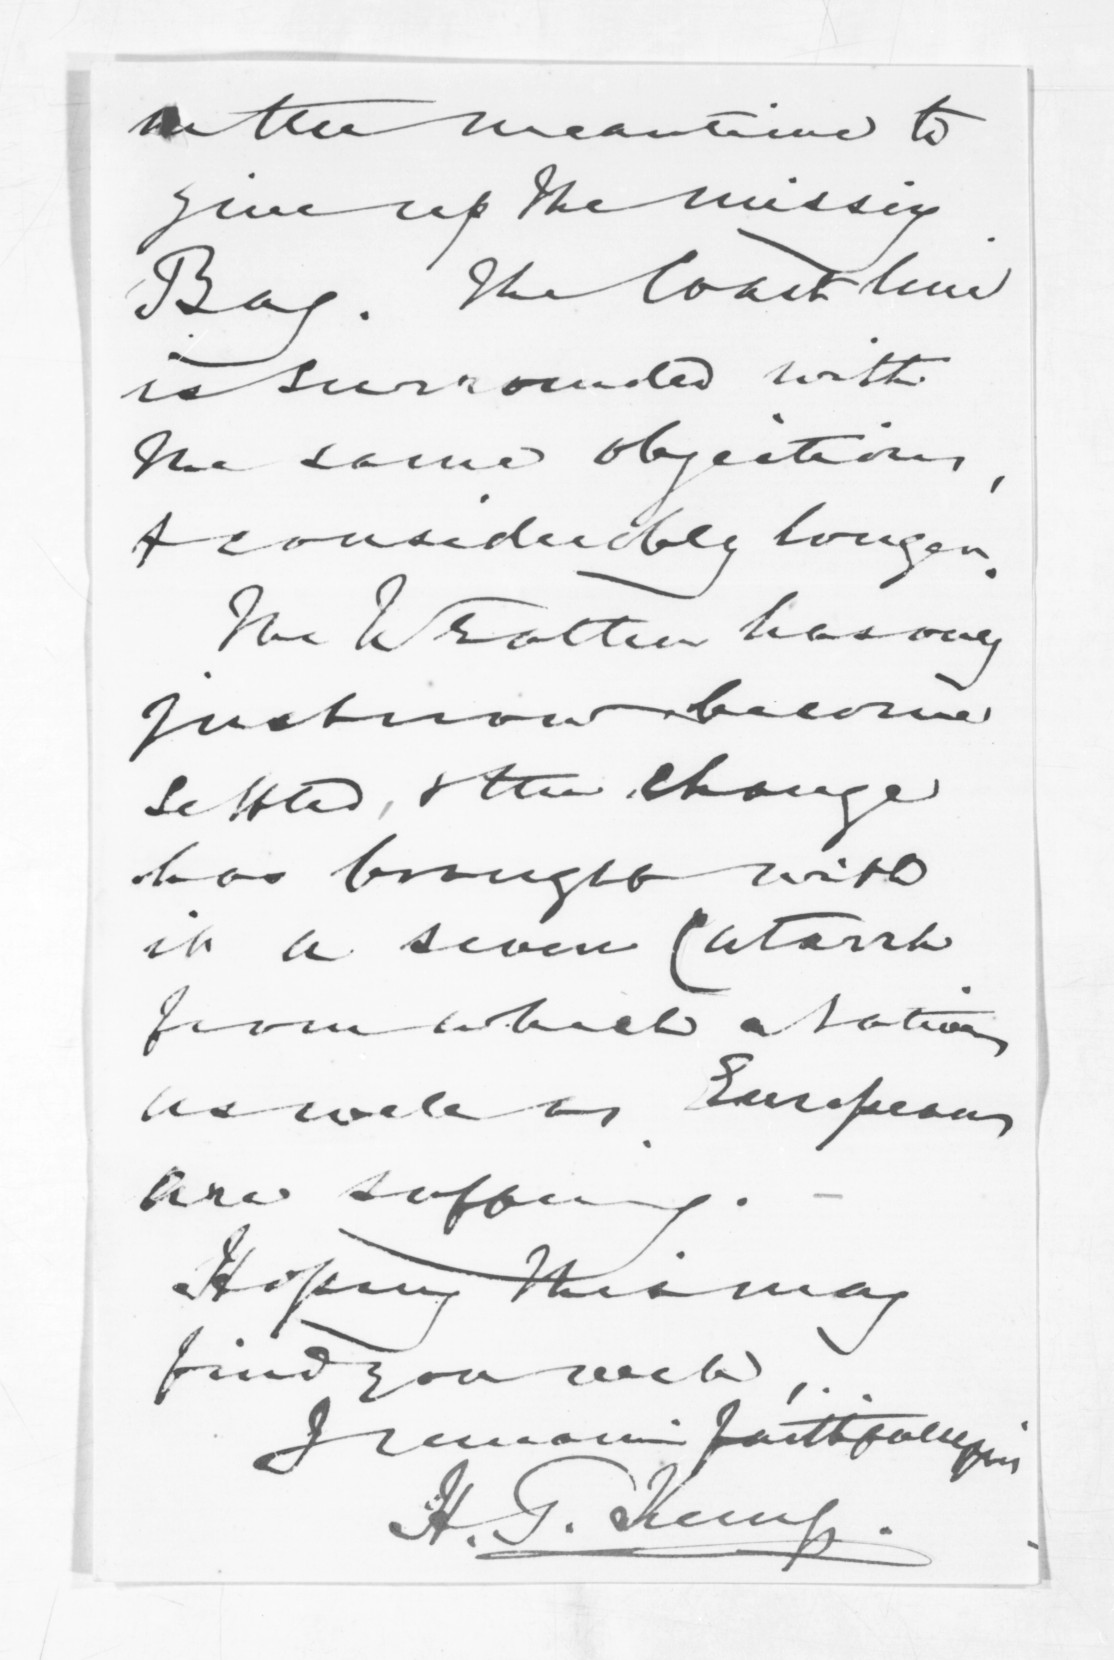 in the meantime to
give up the missing
Bag. The Coast line
is surrounded with
the same objections,
& considerably longer.
The Weather has only
just now become
settled, & the change
has brought with
it a severe Catarrh
from which Natives
as well as Europeans
are suffering. —
Hoping this may
find you well,
I remain faithfully yrs
H. G. Kemp.